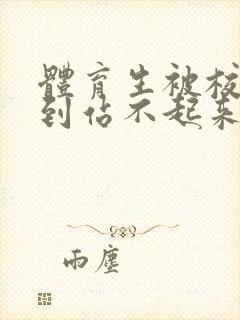 體育生被
到佔不起來
雨塵